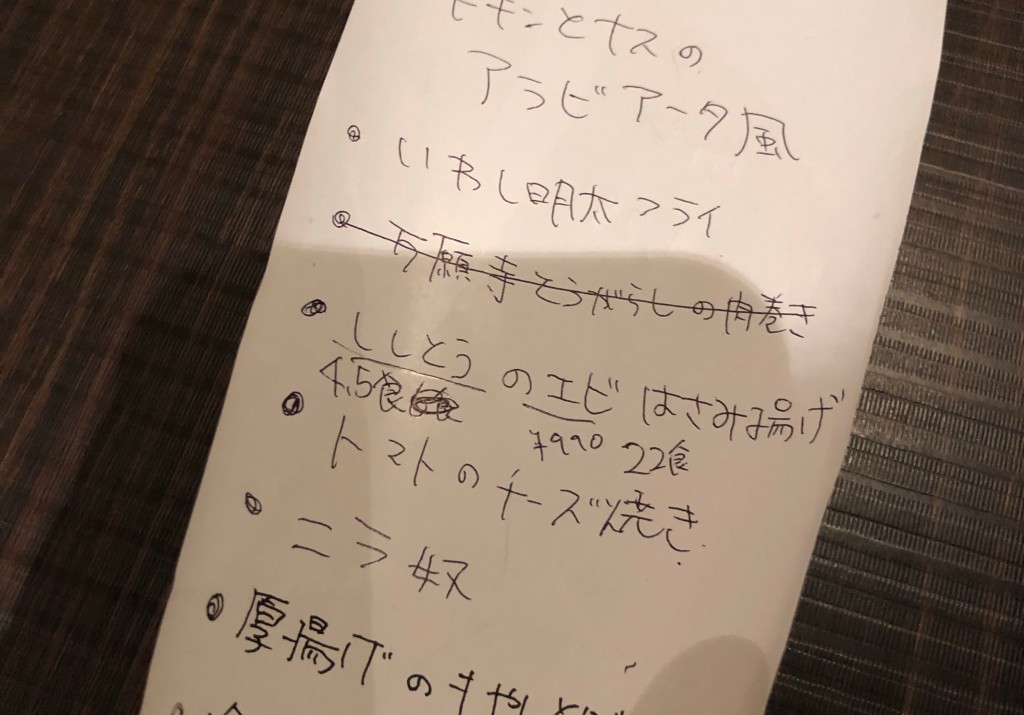 チキンとナスの
アラビアータ風
いわし明太フライ
万願寺とうがらしの肉巻き
ししとうのエビはさみ揚げ
4.5食 ¥990 22食
トマトのチーズ焼き
ニラ奴
厚揚げのもやし